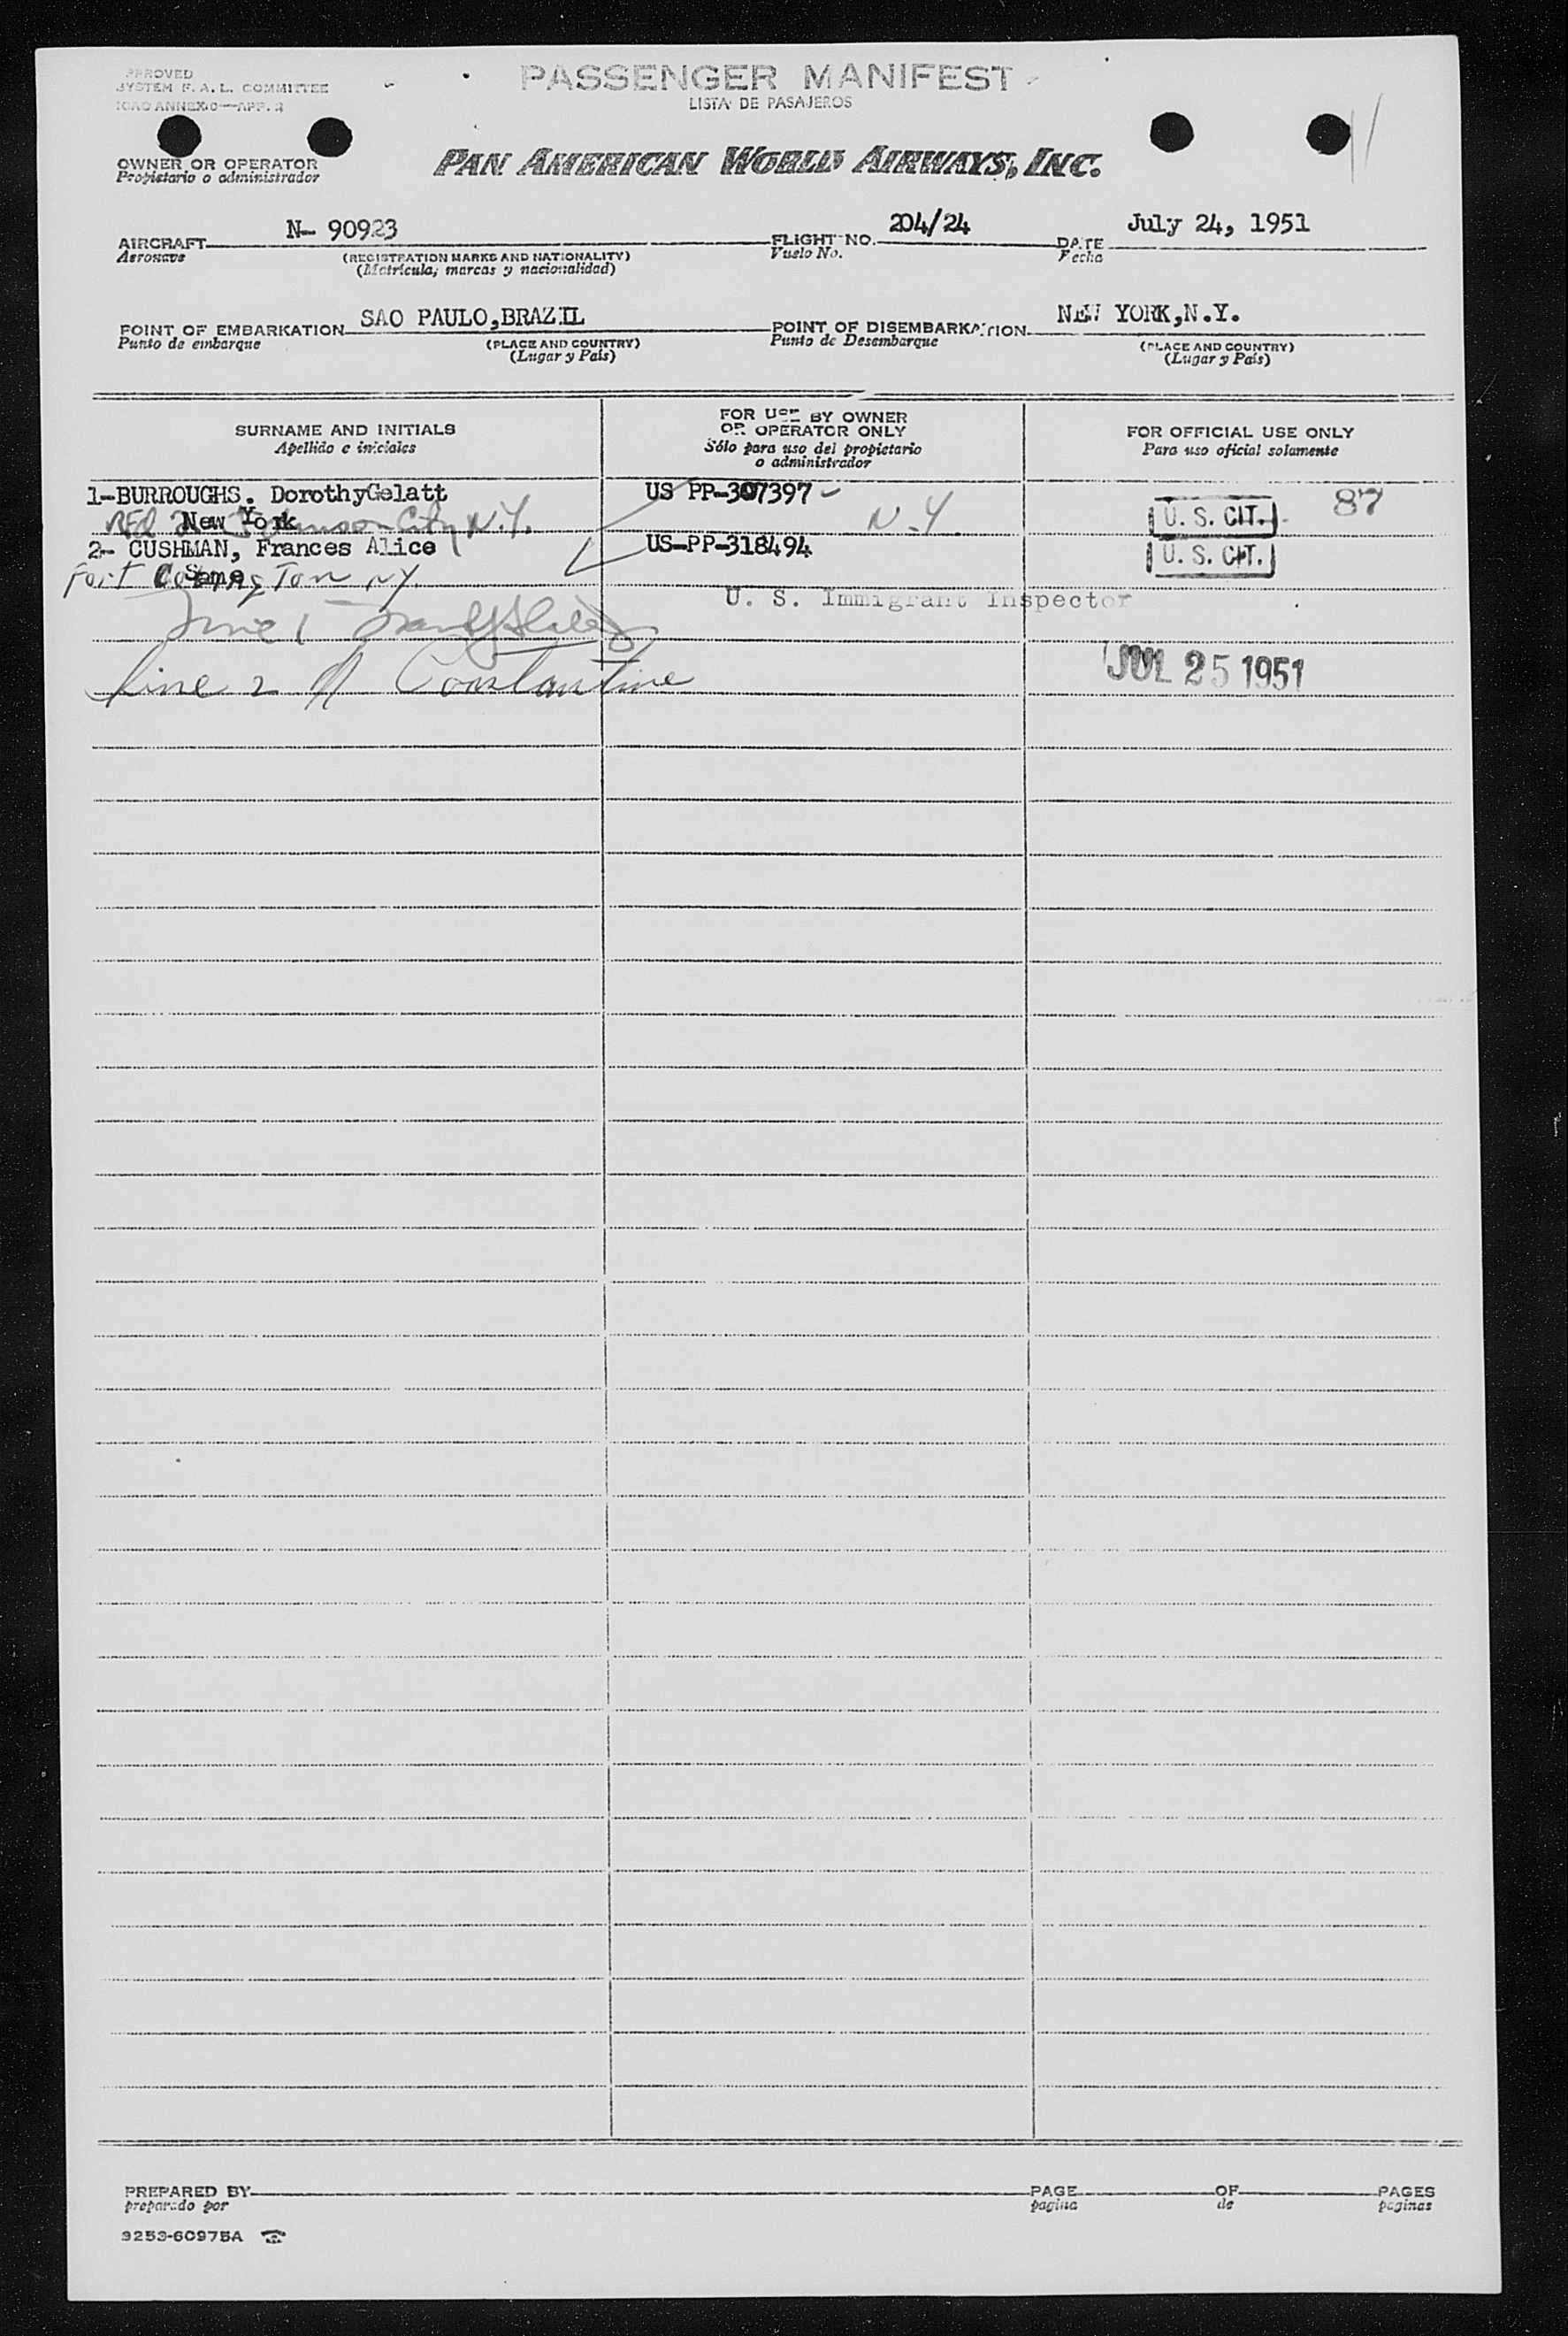 PASSENGER MANIFEST
LISTA DE PASAJEROS
PPROVED
SYSTEM F. A. L. COMMITTEE
ICAO ANNEX 9—APP. 2
OWNER OR OPERATOR
Propietario o administrador
PAN AMERICAN WORLD AIRWAYS, INC.
AIRCRAFT N- 90923 FLIGHT NO. 204/24 DATE July 24, 1951
Aeronave (REGISTRATION MARKS AND NATIONALITY) Vuelo No. Fecha
(Matrícula, marcas y nacionalidad)
POINT OF EMBARKATION SAO PAULO,BRAZIL POINT OF DISEMBARKATION NEW YORK,N.Y.
Punto de embarque (PLACE AND COUNTRY) Punto de Desembarque (PLACE AND COUNTRY)
(Lugar y País) (Lugar y País)
SURNAME AND INITIALS
Apellido e iniciales
FOR USE BY OWNER
OR OPERATOR ONLY
Sólo para uso del propietario
o administrador
FOR OFFICIAL USE ONLY
Para uso oficial solamente
1-BURROUGHS. DorothyGelatt US PP-307397 87
New York N.Y. U. S. CIT.
Johnson City N.Y.
2- CUSHMAN, Frances Alice US-PP-318494 U. S. CIT.
Same
Fort Covington NY
U. S. Immigrant Inspector
Line 1
Line 2 Constantine JUL 25 1951
PREPARED BY PAGE OF PAGES
preparado por pagina de paginas
9253-60975A